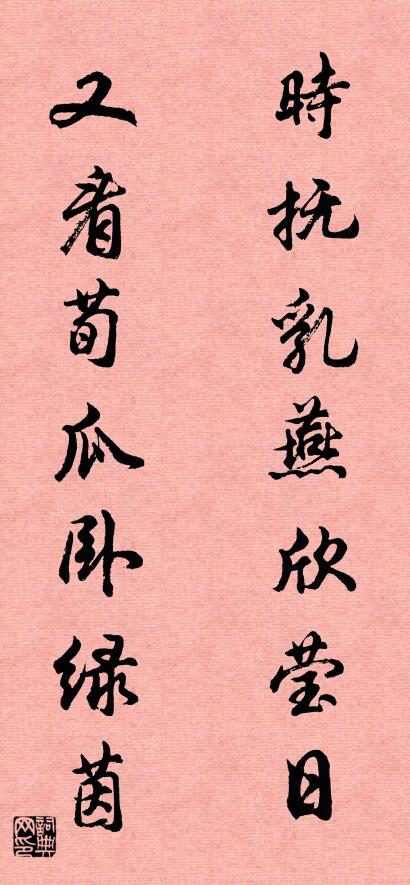 時抚乳燕欣莹日
又看荀瓜卧绿茵
詞典网印